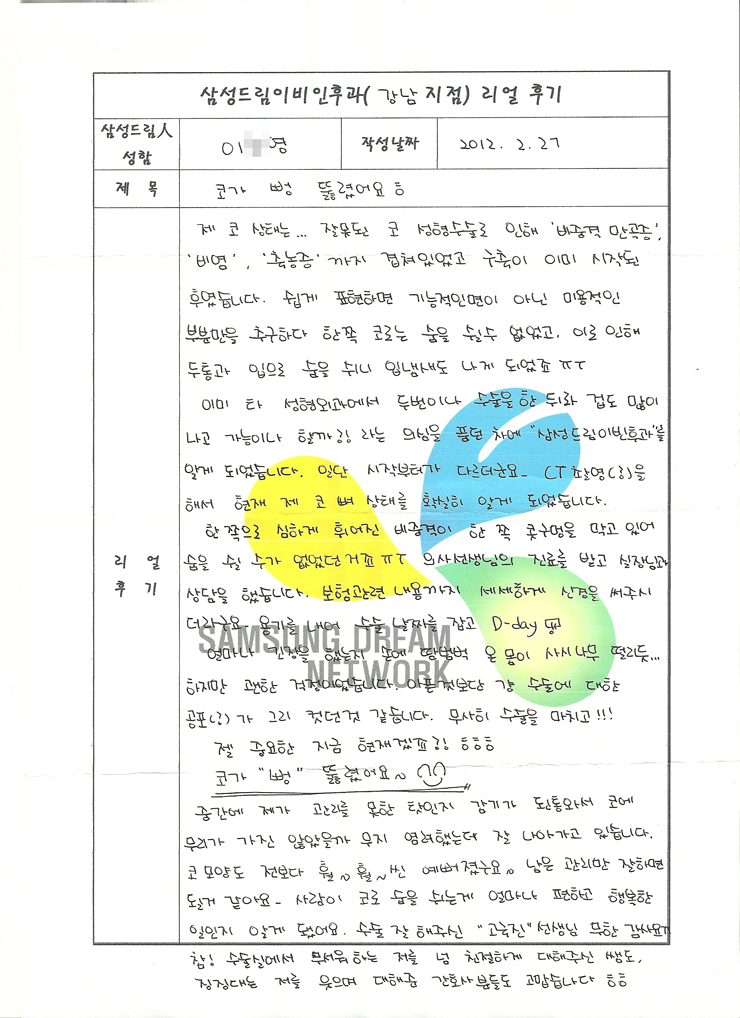 삼성드림이비인후과( 강남 지점) 리얼 후기
삼성드림人 성함
이 영
작성날짜
2012. 2. 27
제 목
코가 뻥 뚫렸어요 ㅎ
리 얼
후 기
제 코 상태는... 잘못된 코 성형수술로 인해 '비중격 만곡증',
'비염', '축농증' 까지 겹쳐있었고 구축이 이미 시작된
후였습니다. 쉽게 표현하면 기능적인면이 아닌 미용적인
부분만을 추구하다 한쪽 코로는 숨을 쉴수 없었고, 이로 인해
두통과 입으로 숨을 쉬니 입냄새도 나게 되었죠 ㅠㅜ
이미 타 성형외과에서 두번이나 수술을 한 뒤라 겁도 많이
나고 가능이나 할까?! 라는 의심을 품던 차에 "삼성드림이빈후과"를
알게 되었습니다. 일단 시작부터가 다르더군요- CT 촬영(?)을
해서 현재 제 코 뼈 상태를 확실히 알게 되었습니다.
한 쪽으로 심하게 휘어진 비중격이 한 쪽 콧구멍을 막고 있어
숨을 쉴 수가 없었던 거죠 ㅠㅜ 의사선생님의 진료를 받고 실장님과
상담을 했습니다. 보험관련 내용까지 세세하게 신경을 써주시
더라구요. 용기를 내어 수술 날짜를 잡고 D-day
얼마나 긴장을 했는지 손에 땀범벅 온 몸이 사시나무 떨리듯...
하지만 괜한 걱정이었습니다. 아픈것보단 걍 수술에 대한
공포(?)가 그리 컸던것 같습니다. 무사히 수술을 마치고!!!
젤 중요한 지금 현재겠죠?! ㅎㅎㅎ
코가 "뻥" 뚫렸어요~
중간에 제가 관리를 못한 탓인지 감기가 된통와서 코에
무리가 가진 않았을까 무지 염려했는데 잘 나아가고 있습니다.
코모양도 전보다 훨~훨~씬 예뻐졌구요~ 남은 관리만 잘하면
될거 같아요- 사람이 코로 숨을 쉬는게 얼마나 편하고 행복한
일인지 알게 됐어요. 수술 잘 해주신 "고육진" 선생님 무한 감사요
참! 수술실에서 무서워하는 저를 넘 친절하게 대해주신 쌤도,
징징대는 저를 웃으며 대해준 간호사분들도 고맙습니다 ㅎㅎ
SAMSUNG DREAM
NETWORK